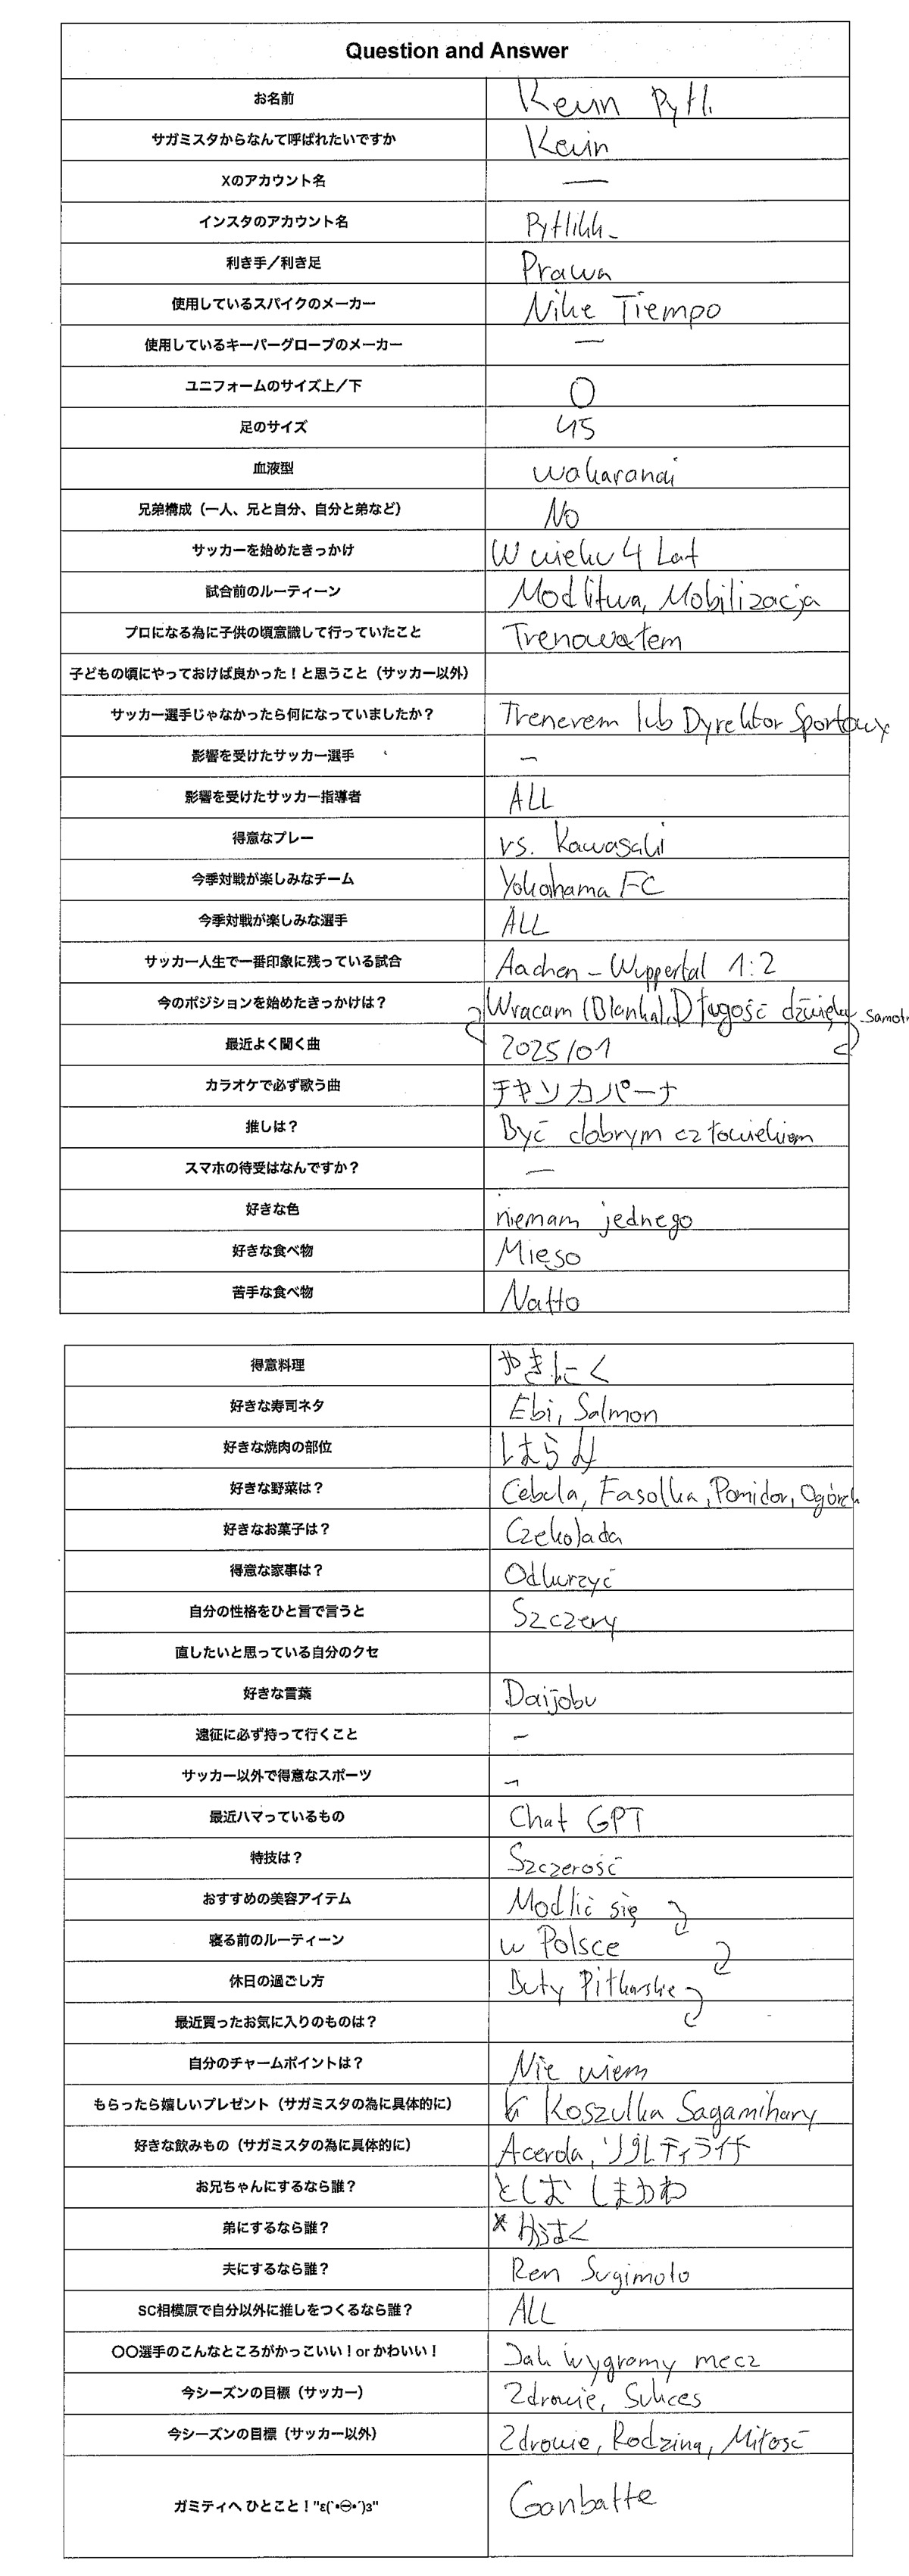 Question and Answer
お名前 Kevin Pytl.
サガミスタからなんて呼ばれたいですか Kevin
Xのアカウント名 —
インスタのアカウント名 Pytlikk_
利き手／利き足 Prawa
使用しているスパイクのメーカー Nike Tiempo
使用しているキーパーグローブのメーカー —
ユニフォームのサイズ上／下 O
足のサイズ 45
血液型 wakaranai
兄弟構成（一人、兄と自分、自分と弟など） No
サッカーを始めたきっかけ W wieku 4 Lat
試合前のルーティーン Modlitwa, Mobilizacja
プロになる為に子供の頃意識して行っていたこと Trenowałem
子どもの頃にやっておけば良かった！と思うこと（サッカー以外）
サッカー選手じゃなかったら何になっていましたか？ Trenerem lub Dyrektor Sportowy
影響を受けたサッカー選手 —
影響を受けたサッカー指導者 ALL
得意なプレー vs. Kawasaki
今季対戦が楽しみなチーム Yokohama FC
今季対戦が楽しみな選手 ALL
サッカー人生で一番印象に残っている試合 Aachen - Wuppertal 1:2
今のポジションを始めたきっかけは？ Wracam (Blanka), Długość dźwięku samot.
最近よく聞く曲 2025/01
カラオケで必ず歌う曲 チャンカパーナ
推しは？ Być dobrym człowiekiem
スマホの待受はなんですか？ —
好きな色 niemam jednego
好きな食べ物 Mięso
苦手な食べ物 Natto
得意料理 やきにく
好きな寿司ネタ Ebi, Salmon
好きな焼肉の部位 はらみ
好きな野菜は？ Cebula, Fasolka, Pomidor, Ogórek
好きなお菓子は？ Czekolada
得意な家事は？ Odkurzyć
自分の性格をひと言で言うと Szczery
直したいと思っている自分のクセ
好きな言葉 Daijobu
遠征に必ず持って行くこと —
サッカー以外で得意なスポーツ —
最近ハマっているもの Chat GPT
特技は？ Szczerość
おすすめの美容アイテム Modlić się
寝る前のルーティーン w Polsce
休日の過ごし方 Buty Piłkarskie
最近買ったお気に入りのものは？
自分のチャームポイントは？ Nie wiem
もらったら嬉しいプレゼント（サガミスタの為に具体的に） Koszulka Sagamihary
好きな飲みもの（サガミスタの為に具体的に） Acerola, ソルティライチ
お兄ちゃんにするなら誰？ としお しまかわ
弟にするなら誰？
夫にするなら誰？ Ren Sugimoto
SC相模原で自分以外に推しをつくるなら誰？ ALL
〇〇選手のこんなところがかっこいい！or かわいい！ Jak wygramy mecz
今シーズンの目標（サッカー） Zdrowie, Sukces
今シーズンの目標（サッカー以外） Zdrowie, Rodzina, Miłość
ガミティへ ひとこと！"ε(`•㊀•´)з" Ganbatte